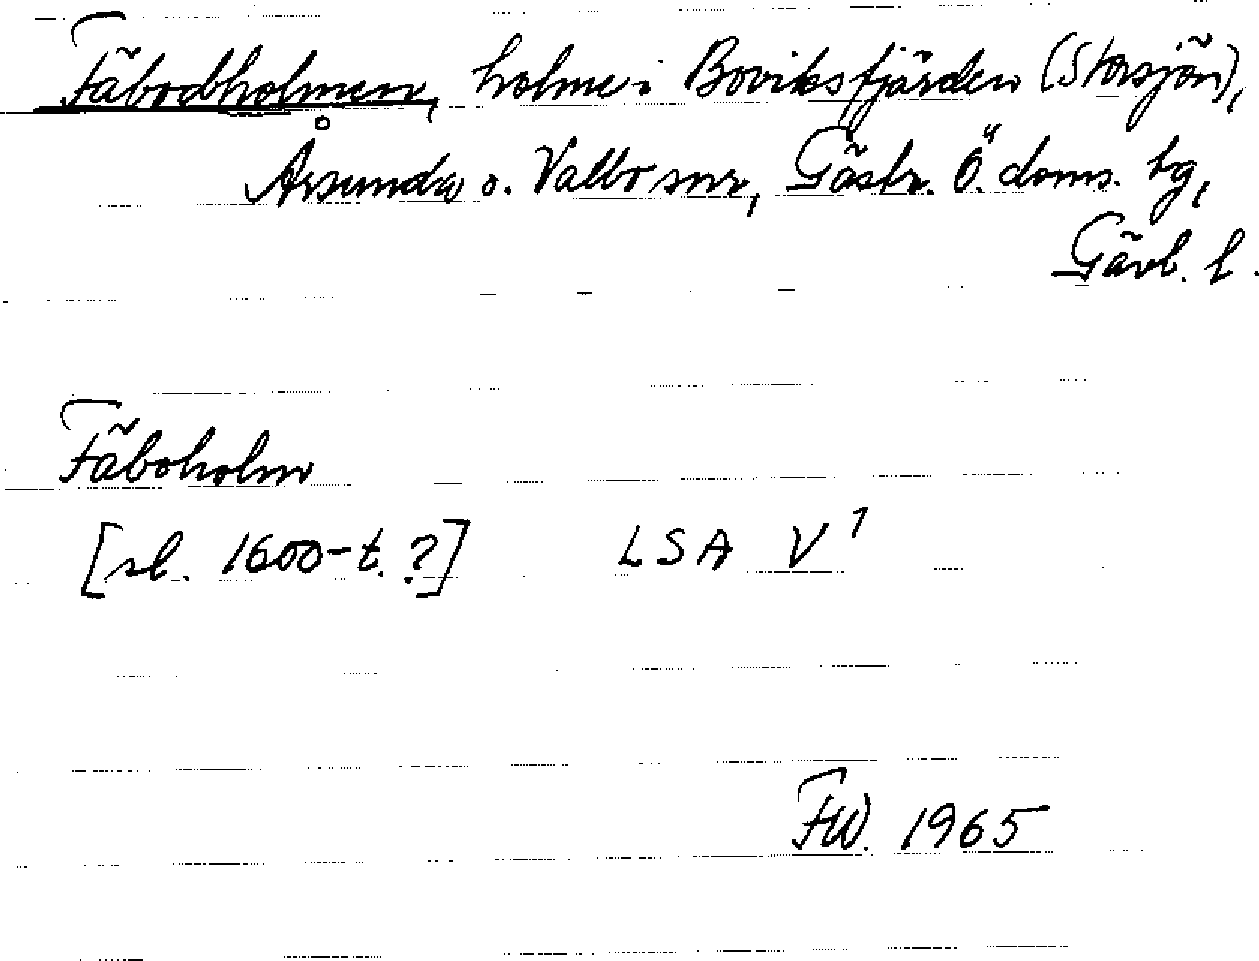 Fäbodholmen, holme i Boviksfjärden (Storsjön),
Årsunda o. Valbo snr, Gästr. Ö. doms. hg,
Gävl. l.
Fäboholm
[sl. 1600-t.?] LSA V¹
FW. 1965